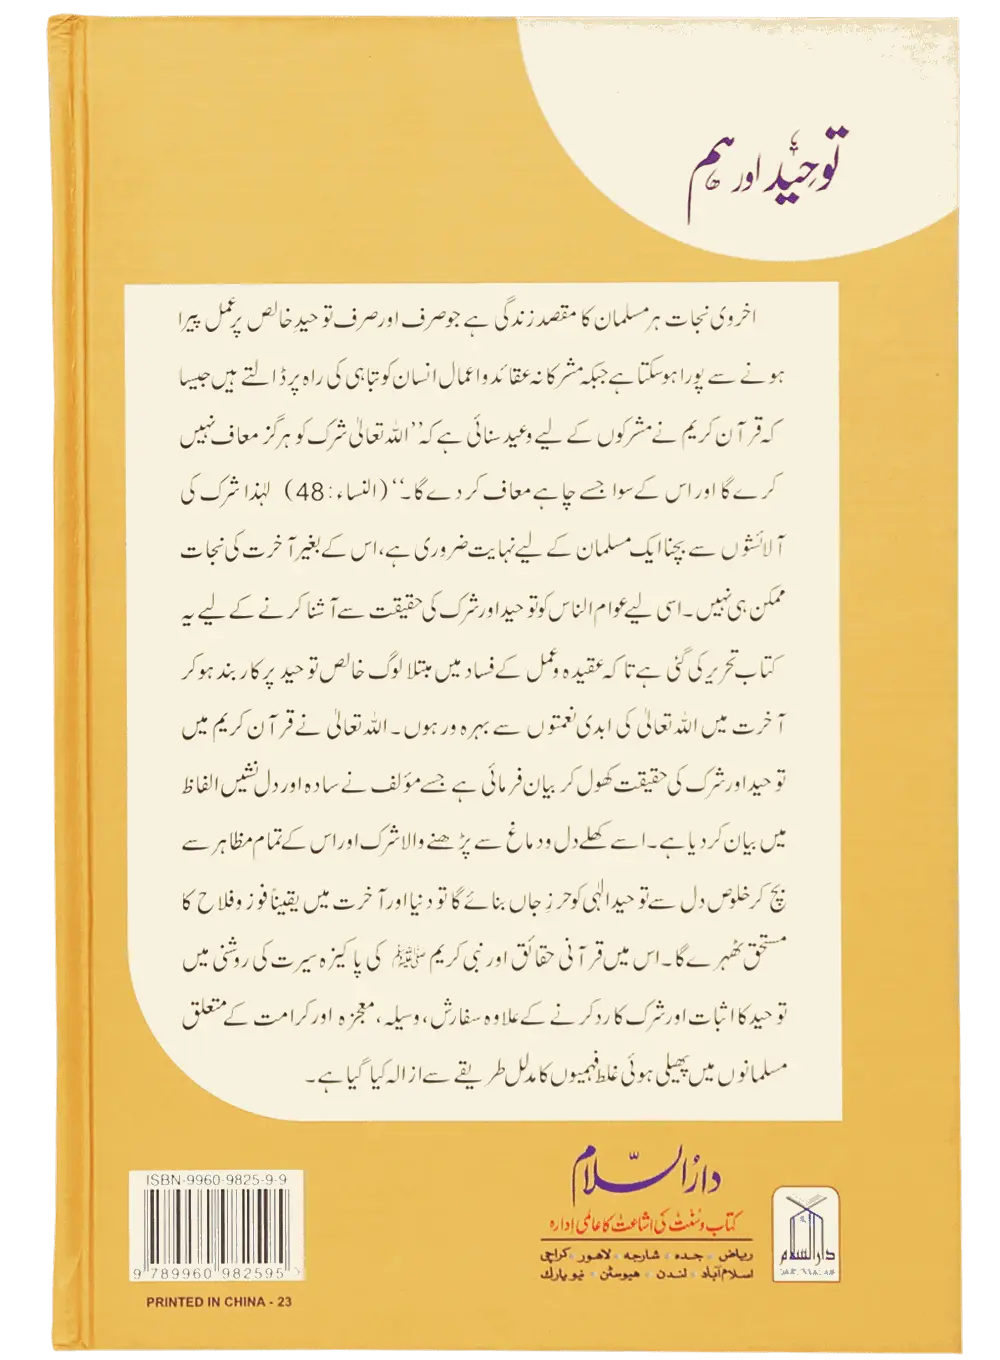 توحید اور ہم
اخروی نجات ہر مسلمان کا مقصد زندگی ہے جو صرف اور صرف توحیدِ خالص پر عمل پیرا
ہونے سے پورا ہوسکتا ہے جبکہ مشرکانہ عقائد و اعمال انسان کو تباہی کی راہ پر ڈالتے ہیں جیسا
کہ قرآن کریم نے مشرکوں کے لیے وعید سنائی ہے کہ ’’اللہ تعالیٰ شرک کو ہرگز معاف نہیں
کرے گا اور اس کے سوا جسے چاہے معاف کر دے گا۔‘‘ (النساء:48) لہٰذا شرک کی
آلائشوں سے بچنا ایک مسلمان کے لیے نہایت ضروری ہے، اس کے بغیر آخرت کی نجات
ممکن ہی نہیں۔ اسی لیے عوام الناس کو توحید اور شرک کی حقیقت سے آشنا کرنے کے لیے یہ
کتاب تحریر کی گئی ہے تاکہ عقیدہ و عمل کے فساد میں مبتلا لوگ خالص توحید پر کاربند ہوکر
آخرت میں اللہ تعالیٰ کی ابدی نعمتوں سے بہرہ ور ہوں۔ اللہ تعالیٰ نے قرآن کریم میں
توحید اور شرک کی حقیقت کھول کر بیان فرمائی ہے جسے مؤلف نے سادہ اور دل نشیں الفاظ
میں بیان کر دیا ہے۔ اسے کھلے دل و دماغ سے پڑھنے والا شرک اور اس کے تمام مظاہر سے
بچ کر خلوص دل سے توحید الٰہی کو حرزِ جاں بنائے گا تو دنیا اور آخرت میں یقیناً فوز و فلاح کا
مستحق ٹھہرے گا۔ اس میں قرآنی حقائق اور نبی کریم ﷺ کی پاکیزہ سیرت کی روشنی میں
توحید کا اثبات اور شرک کا رد کرنے کے علاوہ سفارش، وسیلہ، معجزہ اور کرامت کے متعلق
مسلمانوں میں پھیلی ہوئی غلط فہمیوں کا مدلل طریقے سے ازالہ کیا گیا ہے۔
دارالسّلام
کتاب و سُنّت کی اشاعت کا عالمی اِدارہ
ریاض • جدہ • شارجہ • لاہور • کراچی
اسلام آباد • لندن • ہیوسٹن • نیو یارک
دارالسلام
ISBN-9960-9825-9-9
9 789960 982595 >
PRINTED IN CHINA - 23